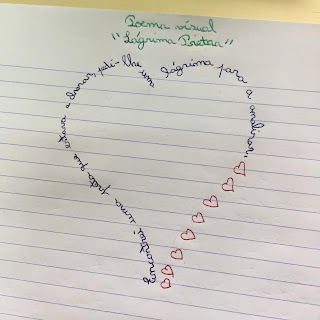 Poema visual
"Lágrima Preta"
Encontrei uma preta que estava a chorar, pedi-lhe uma lágrima para a analisar.